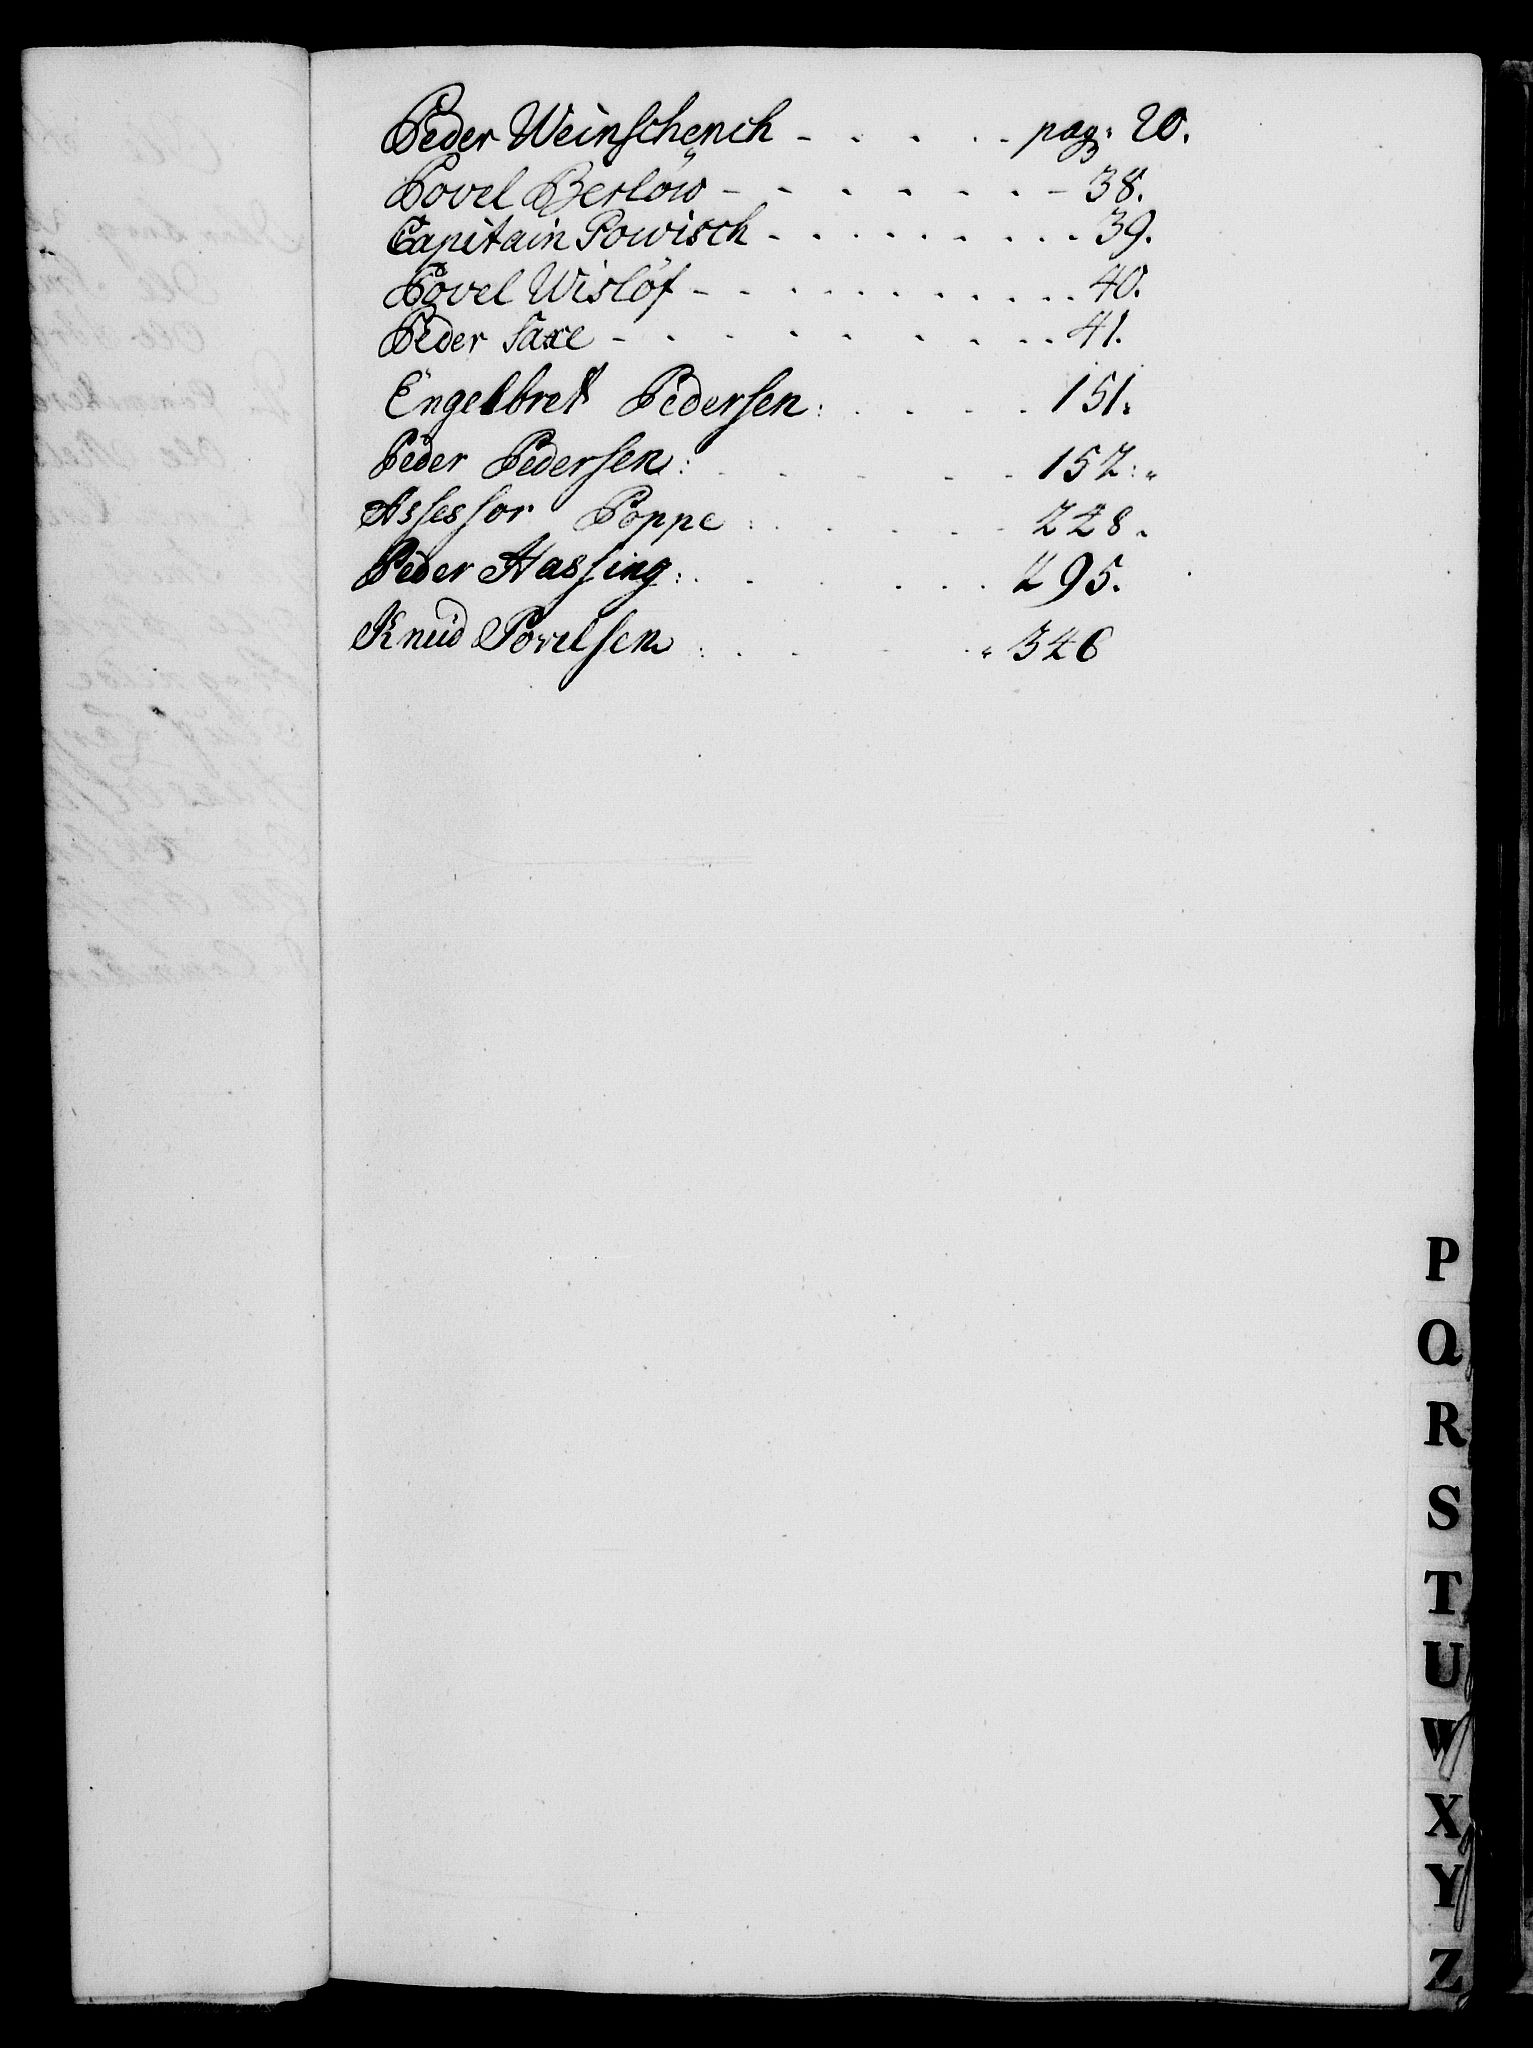 Peder Weinschench - . . . . - pag: 20.
Povel Berlöw - - - - - - - - 38.
Capitain Powisch - . . . . . . . . 39.
Povel Wislöf - - . . . . . . . . 40.
Peder Saxe - - . . . . . . . 41.
Engelbret Pedersen: . . . . 151.
Peder Pedersen: . . . . - - 152:"
Assessor Poppe: . . . . - 228.
Peder Hassing: . . . . . . 295.
Knud Povelsen: . . . . . " 346
P
Q
R
S
T
U
W
X
Y
Z